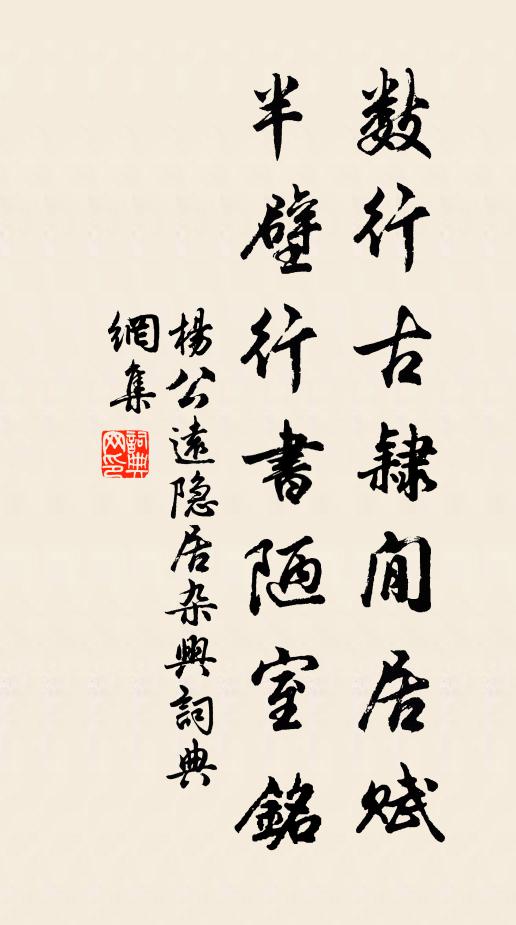 數行古隸閒居賦
半壁行書陋室銘
楊公遠隐居杂興詞典
網集
詞典
网印